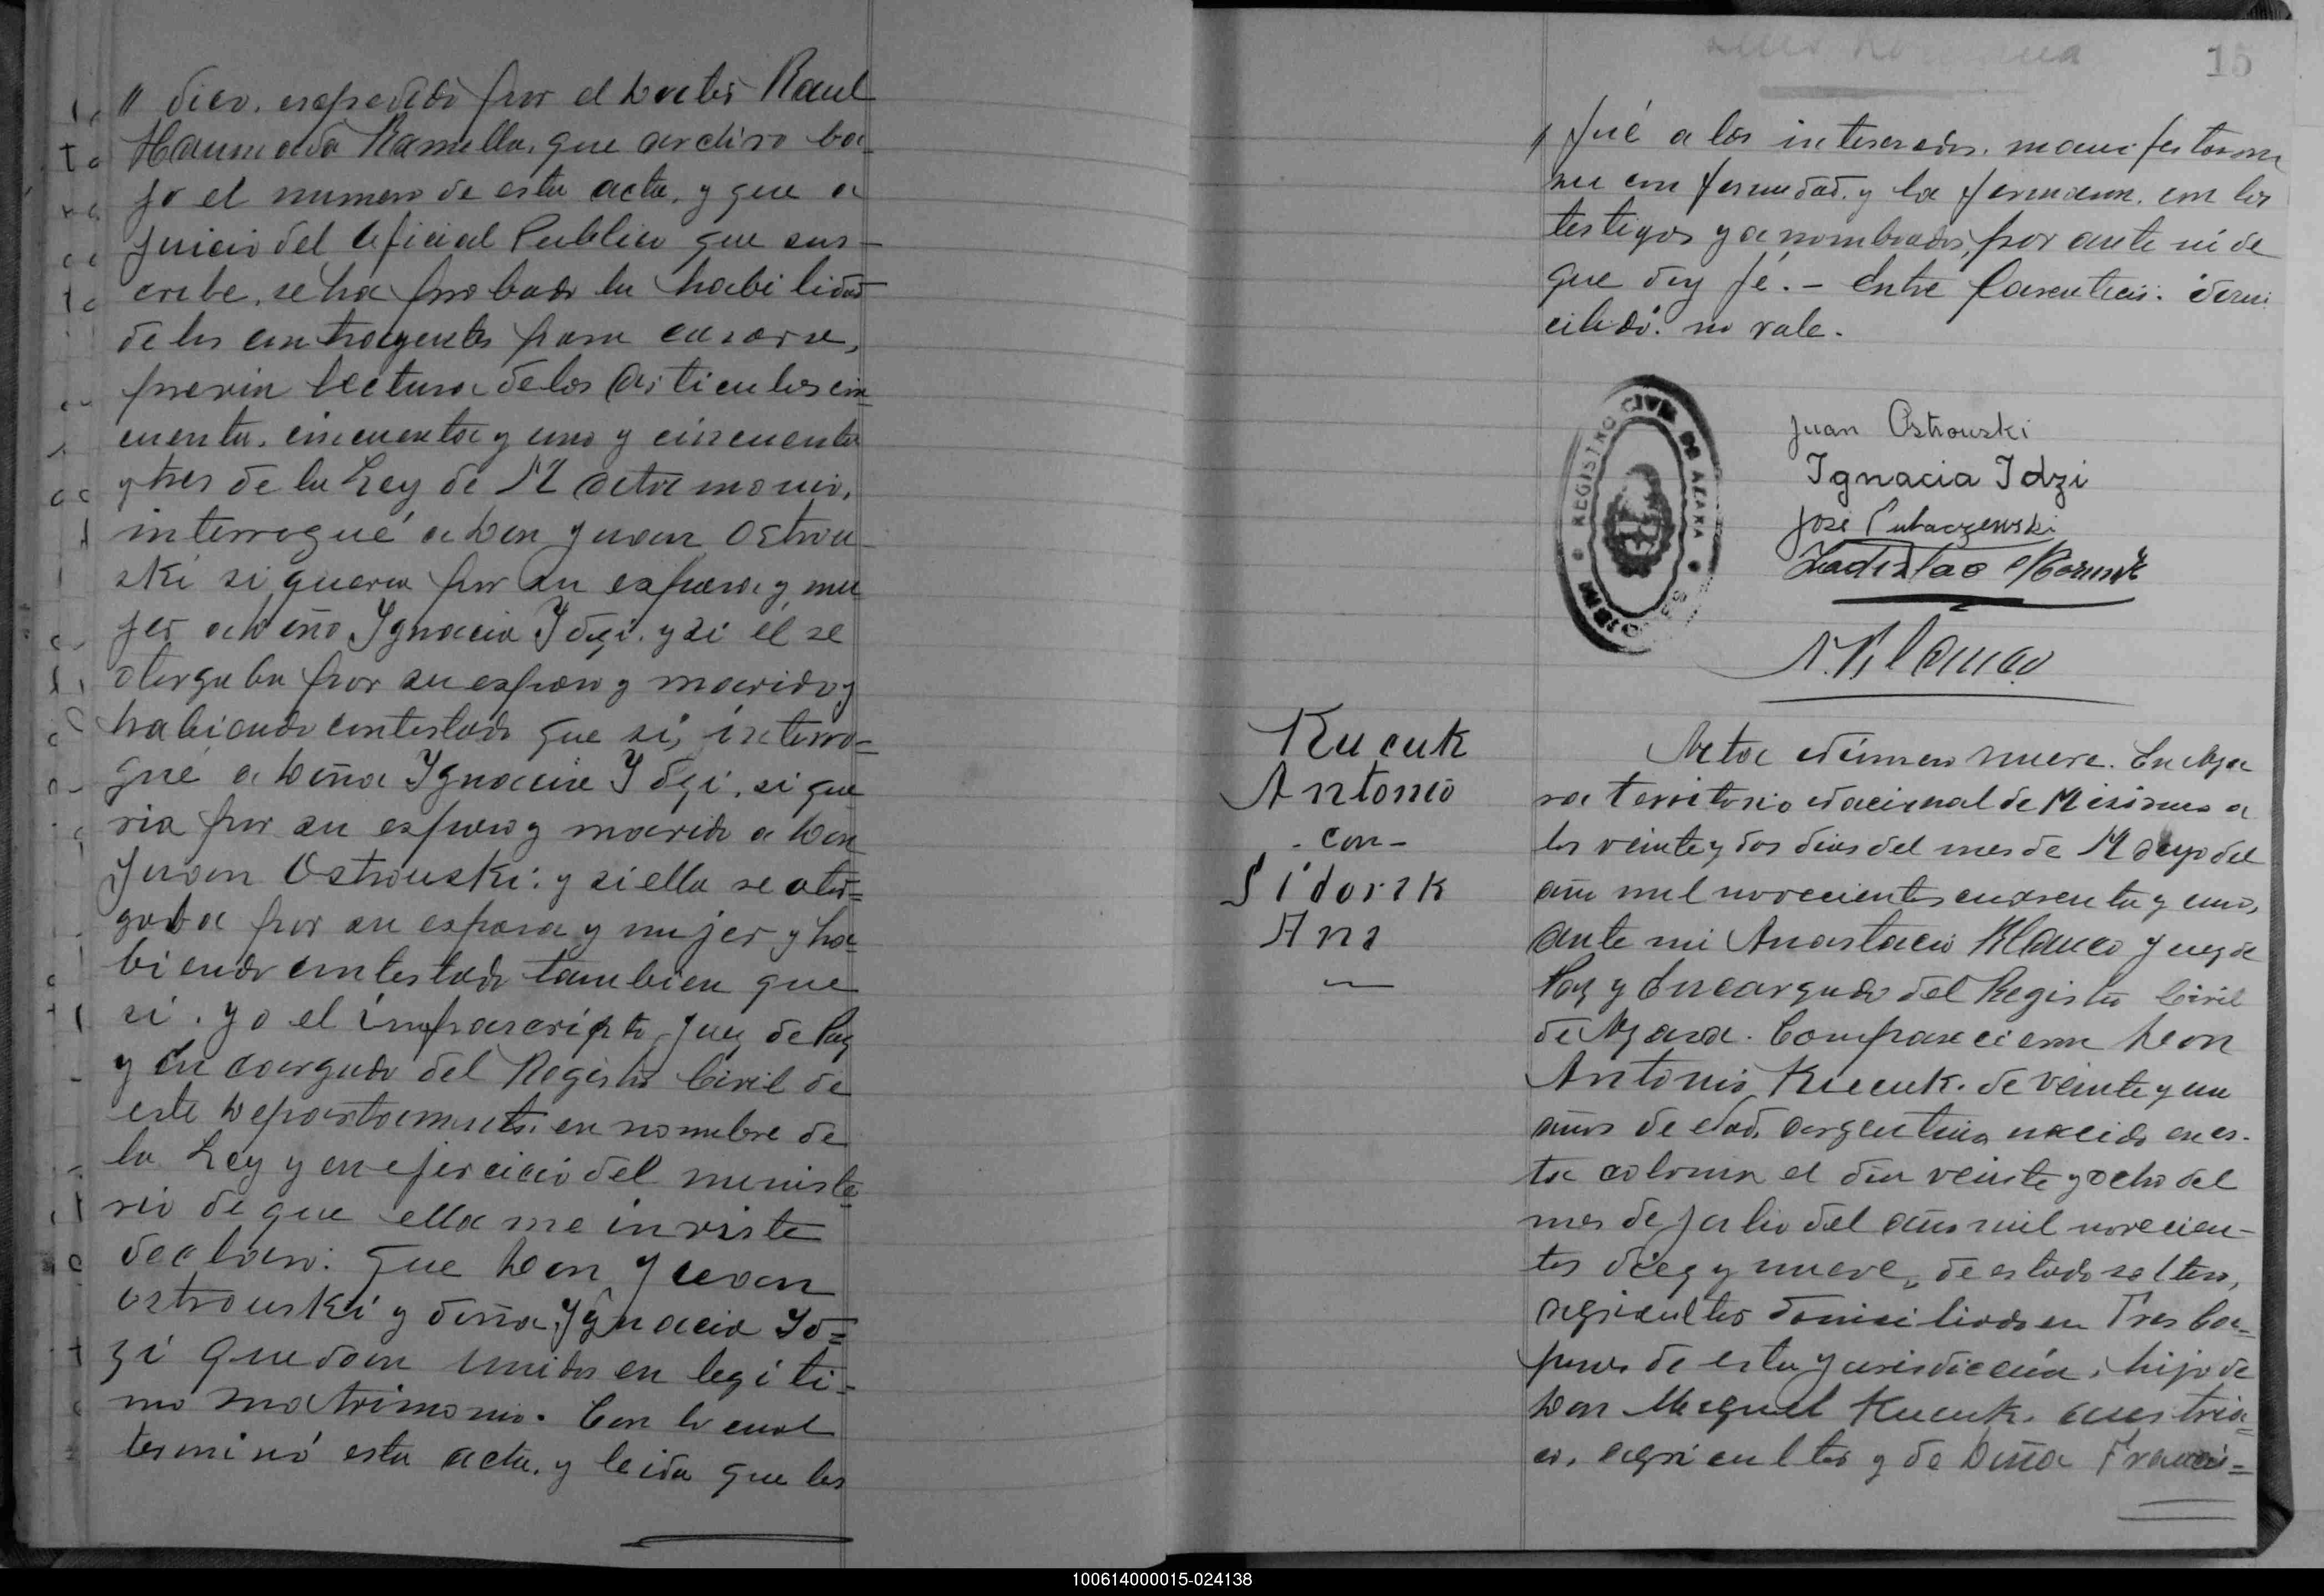 " dico, expedido por el Doctor Raul
Haumada Ramella, que archivo ba-
jo el numero de esta acta, y que a
juicio del Oficial Publico que sus-
cribe, se ha probado la habilidad
de los contrayentes para casarse,
previa lectura de los articulos cin-
cuenta, cincuenta y uno y cincuenta
y tres de la Ley de Matrimonio,
interrogué a Don Juan Ostrou-
ski si queria por su esposa y mu-
jer a Doña Ignacia Idzi, y si él se
otorgaba por su esposo y marido y
habiendo contestado que si, interro=
gué a Doña Ignacia Idzi, si que
ria por su esposo y marido a Don
Juan Ostrouski: y si ella se otor=
gaba por su esposa y mujer y ha-
biendo contestado tambien que
si. Yo el infrascripto Juez de Paz
y Encargado del Registro Civil de
este Departamento, en nombre de
la Ley y en ejercicio del ministe-
rio de que ella me inviste
declaro: que Don Juan
Ostrouski y doña Ignacia Id=
zi quedan unidos en legiti-
mo matrimonio. Con lo cual
terminó esta acta, y leida que les
15
" fué a los interesados, manifestaron
su conformidad, y la firmaron, con los
testigos ya nombrados, por ante mi de
que doy fé.- Entre parentecis: domi
ciliado: no vale.
REGISTRO CIVIL DE AZARA
MISIONES
Juan Ostrouski
Ignacia Idzi
José
Ladislao
A. Klauco
Kucuk
Antonio
- con -
Sidorsk
Ana
Acta Número nueve. En Aza
ra territorio Nacional de Misiones a
los veinte y dos dias del mes de Mayo del
año mil novecientos cuarenta y uno,
ante mi Anastacio Klauco Juez de
Paz y Encargado del Registro Civil
de Azara. Comparecieron Don
Antonio Kucuk. de veinte y un
años de edad, argentino, nacido en es-
ta colonia el dia veinte y ocho del
mes de julio del año mil novecien-
tos diez y nueve, de estado soltero,
agricultor domiciliado en Tres Ca-
pones de esta jurisdiccion, hijo de
Don Miguel Kucuk, austria=
co, agricultor y de Doña Francis=
100614000015-024138